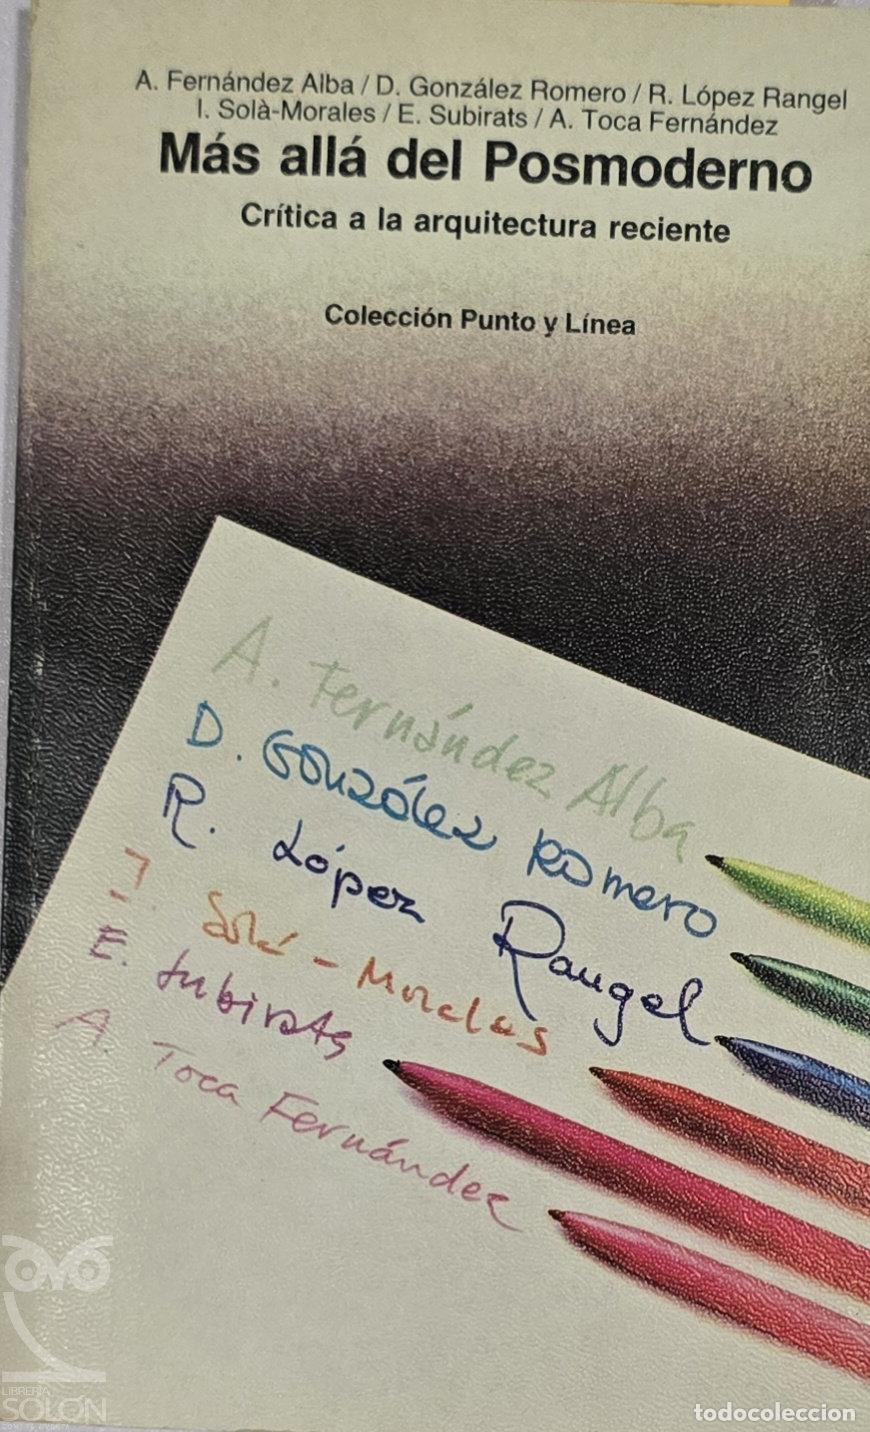 A. Fernández Alba / D. González Romero / R. López Rangel
I. Solà-Morales / E. Subirats / A. Toca Fernández
Más allá del Posmoderno
Crítica a la arquitectura reciente
Colección Punto y Línea
A. Fernández Alba
D. González Romero
R. López Rangel
I. Solá-Morales
E. Subirats
A. Toca Fernández
LIBRERÍA
SOLÓN
todocoleccion